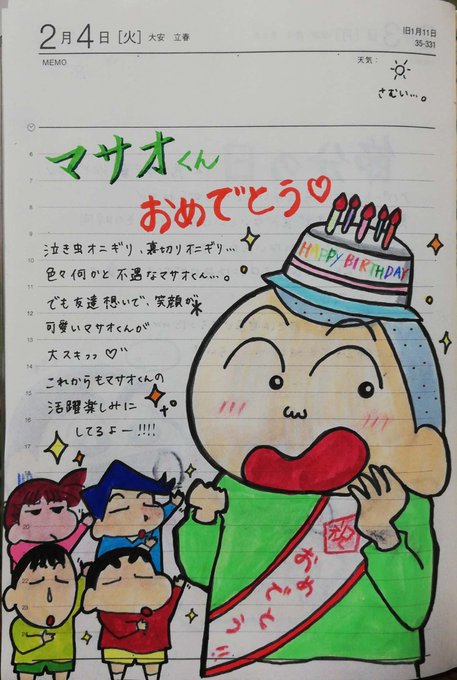 2月4日[火] 大安 立春
旧1月11日
35-331
MEMO
天気:
さむい…。
マサオくん
おめでとう♡
泣き虫オニギリ、裏切りオニギリ…
色々何かと不遇なマサオくん…。
でも友達想いで、笑顔が
可愛いマサオくんが
大スキっっ♡
これからもマサオくんの
活躍楽しみに
してるよー!!!!
HAPPY BIRTHDAY
おめでとう
6
7
8
9
10
11
12
13
14
15
16
17
18
20
22
23
24